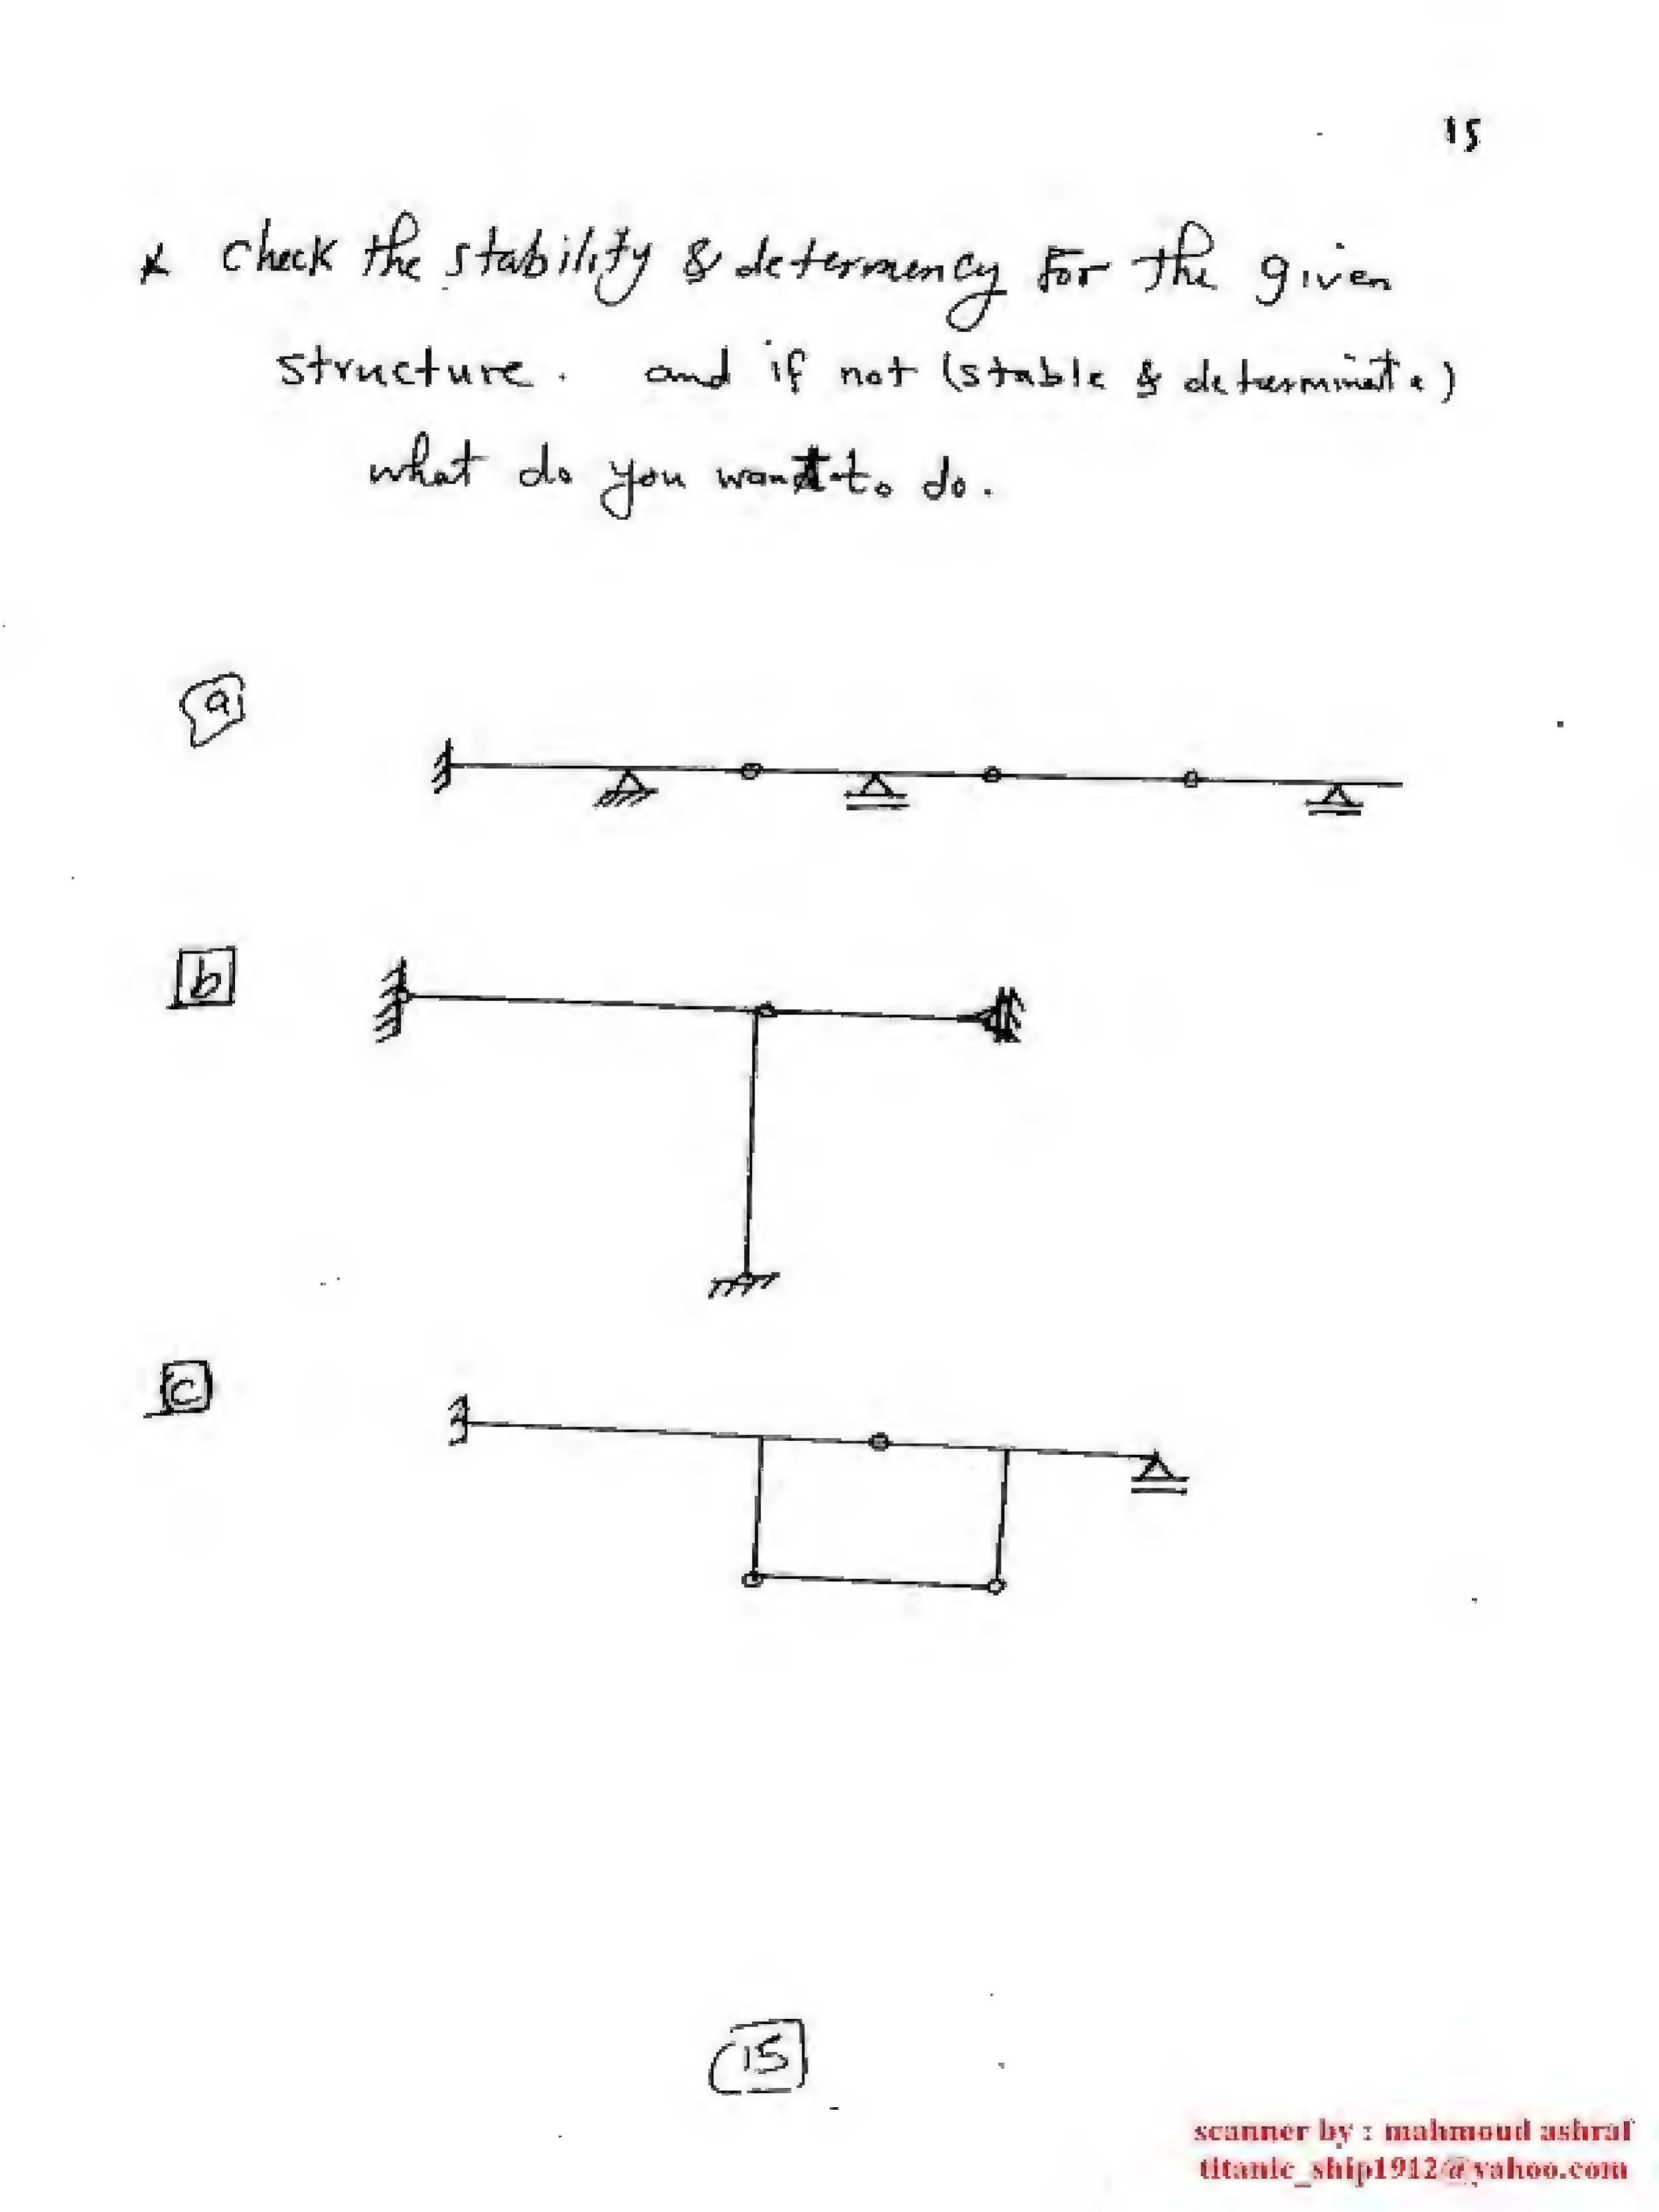 15
* check the stability & determency for the given
structure. and if not (stable & determinate)
what do you want to do.
a
b
c
15
scanner by : mahmoud ashraf
titanic_ship1912@yahoo.com